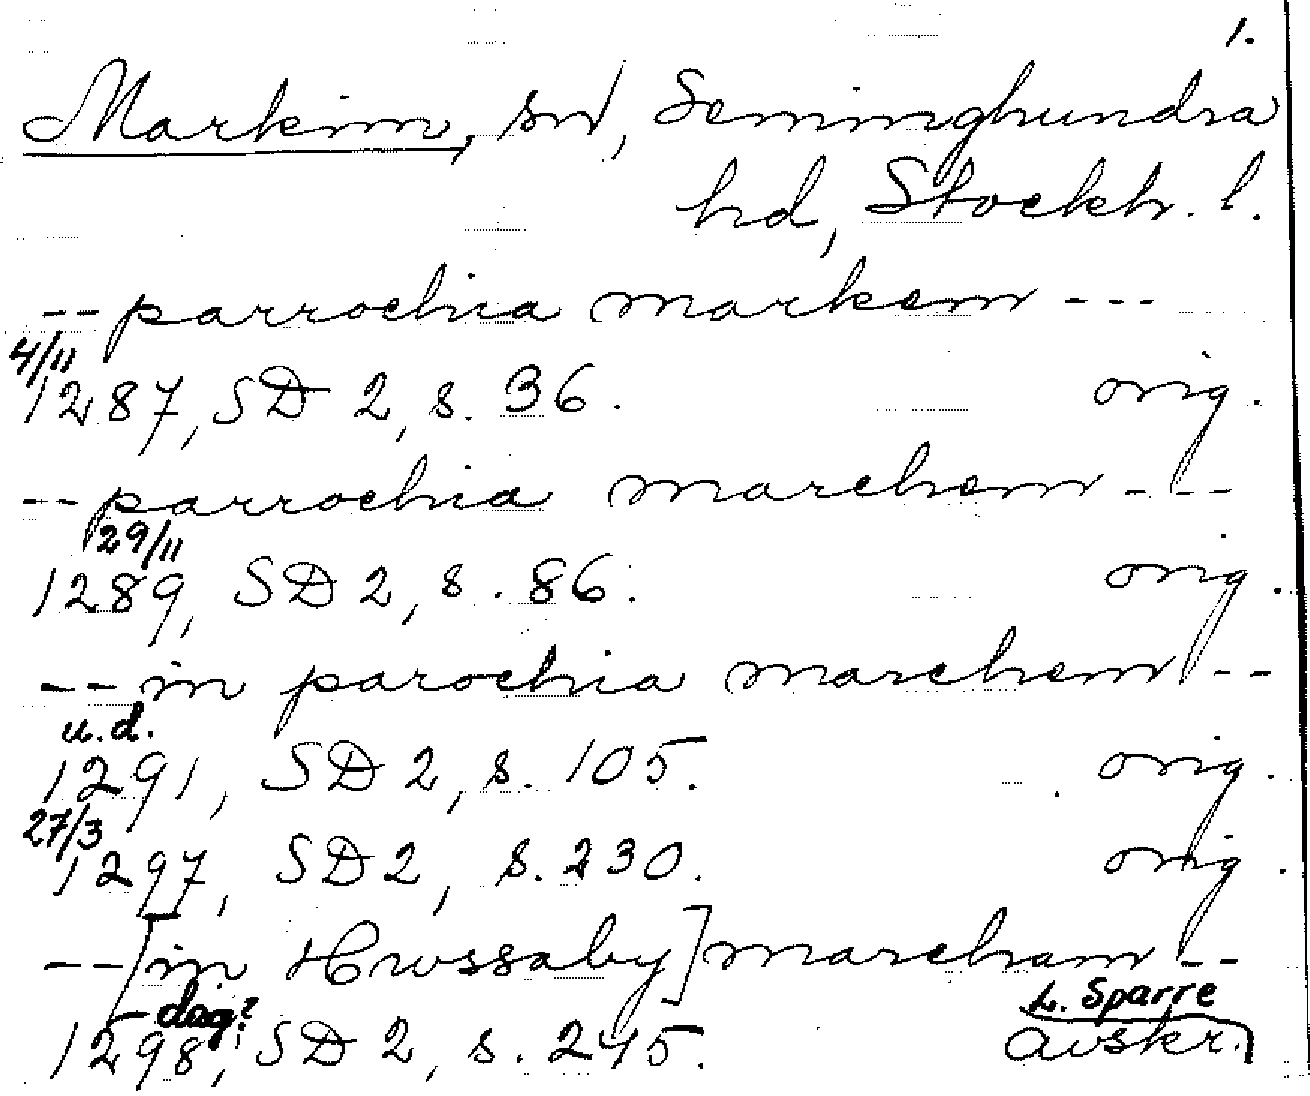 1.
Markim, sn, Seminghundra
hd, Stockh. l.
-- parrochia markem ---
4/11
1287, SD 2, s. 36. orig.
-- parrochia marchem ---
29/11
1289, SD 2, s. 86. orig.
-- in parochia marchem --
u.d.
1291, SD 2, s. 105. orig.
27/3
1297, SD 2, s. 230. orig.
-- [in Hwssaby] marcham --
dag? L. Sparre
1298, SD 2, s. 245. avskr.